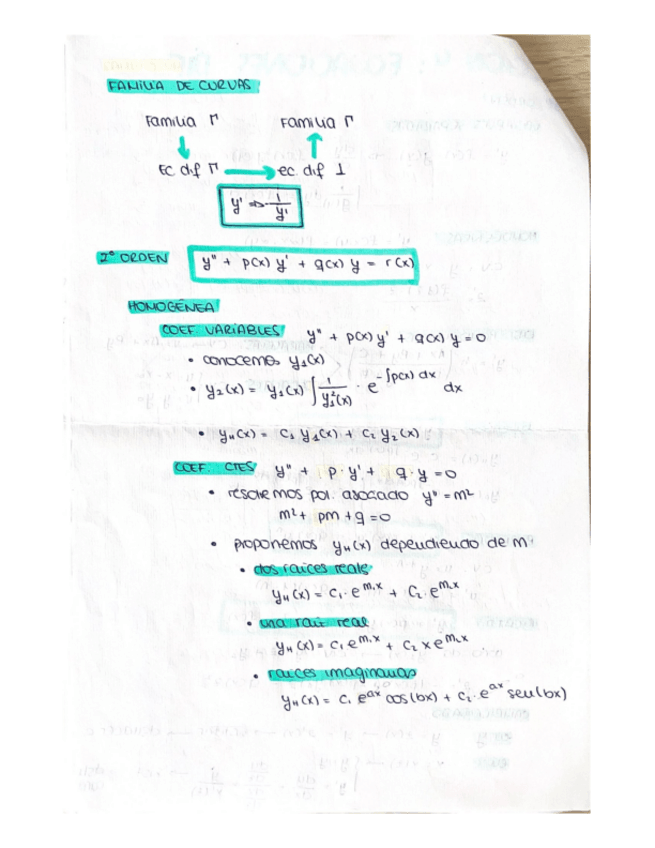 FAMILIA DE CURVAS
Familia Γ Familia Γ
Ec dif Γ → ec. dif ⊥
y' => 1/y'
2º ORDEN y'' + p(x) y' + q(x) y = r(x)
HOMOGÉNEA
COEF. VARIABLES y'' + p(x) y' + q(x) y = 0
• conocemos y₁(x)
• y₂(x) = y₁(x) ∫ 1/y₁²(x) · e^(-∫p(x) dx) dx
• y_H(x) = C₁ y₁(x) + C₂ y₂(x)
COEF. CTES y'' + p · y' + q · y = 0
• resolvemos pol. asociado y'' = m²
m² + pm + q = 0
• proponemos y_H(x) dependiendo de m
• dos raices reales
y_H(x) = C₁ · e^(m₁x) + C₂ · e^(m₂x)
• una raiz real
y_H(x) = C₁ e^(m₁x) + C₂ x e^(m₂x)
• raices imaginarias
y_H(x) = C₁ e^(ax) cos(bx) + C₂ · e^(ax) sen(bx)